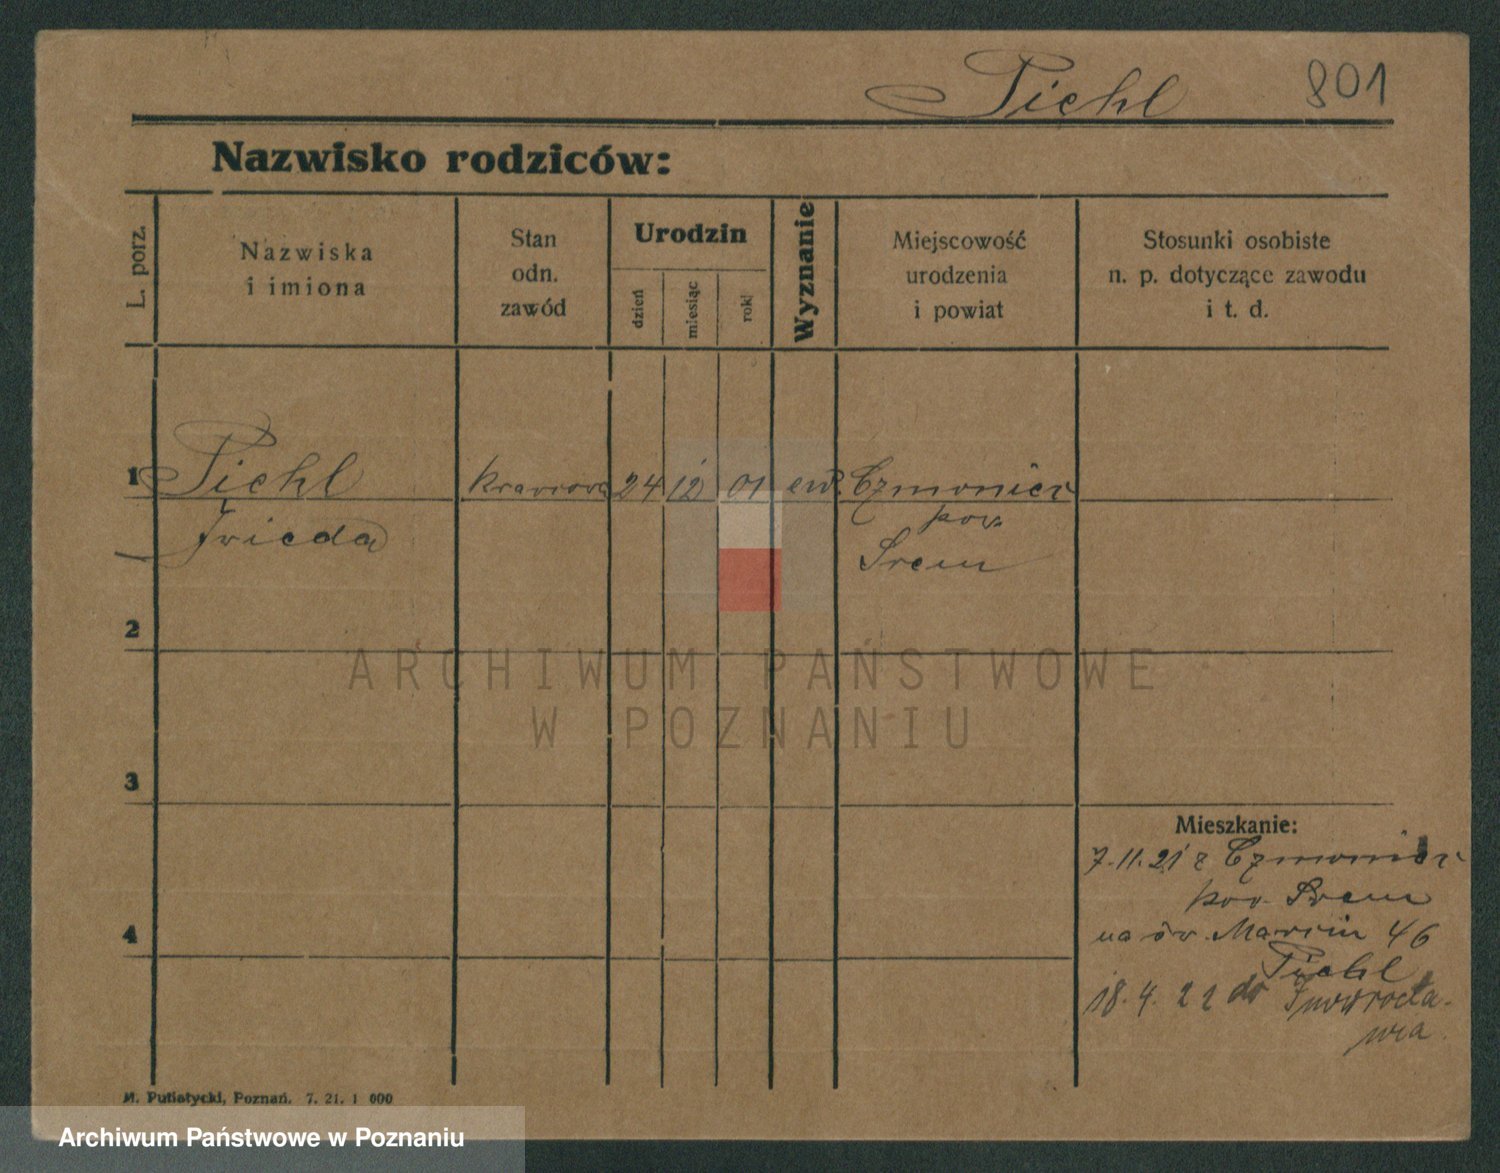 Piehl 801
Nazwisko rodziców:
L. porz.
Nazwiska
i imiona
Stan
odn.
zawód
Urodzin
dzień
miesiąc
rok
Wyznanie
Miejscowość
urodzenia
i powiat
Stosunki osobiste
n. p. dotyczące zawodu
i t. d.
1 Piehl krawcowa 24 12 01 ew. Czmoniec
Frieda pow.
Śrem
2
ARCHIWUM PAŃSTWOWE
W POZNANIU
3
Mieszkanie:
7.11.21 z Czmoniec
pow. Śrem
4
na św. Marcin 46
Piehl
18.4.22 do Inowrocła-
wia.
M. Putiatycki, Poznań. 7. 21. 1 000
Archiwum Państwowe w Poznaniu